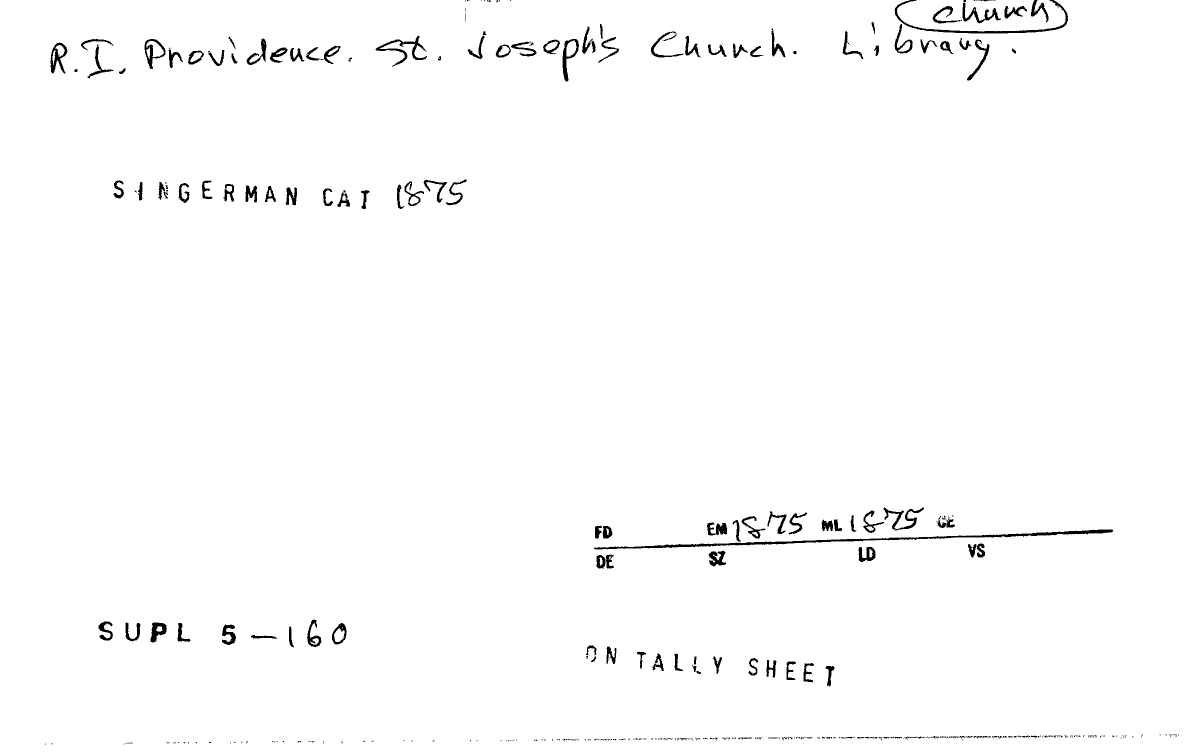 church
R.I. Providence. St. Joseph's Church. Library.
SINGERMAN CAT 1875
FD EM 1875 ML 1875 CE
DE SZ LD VS
SUPL 5-160
ON TALLY SHEET